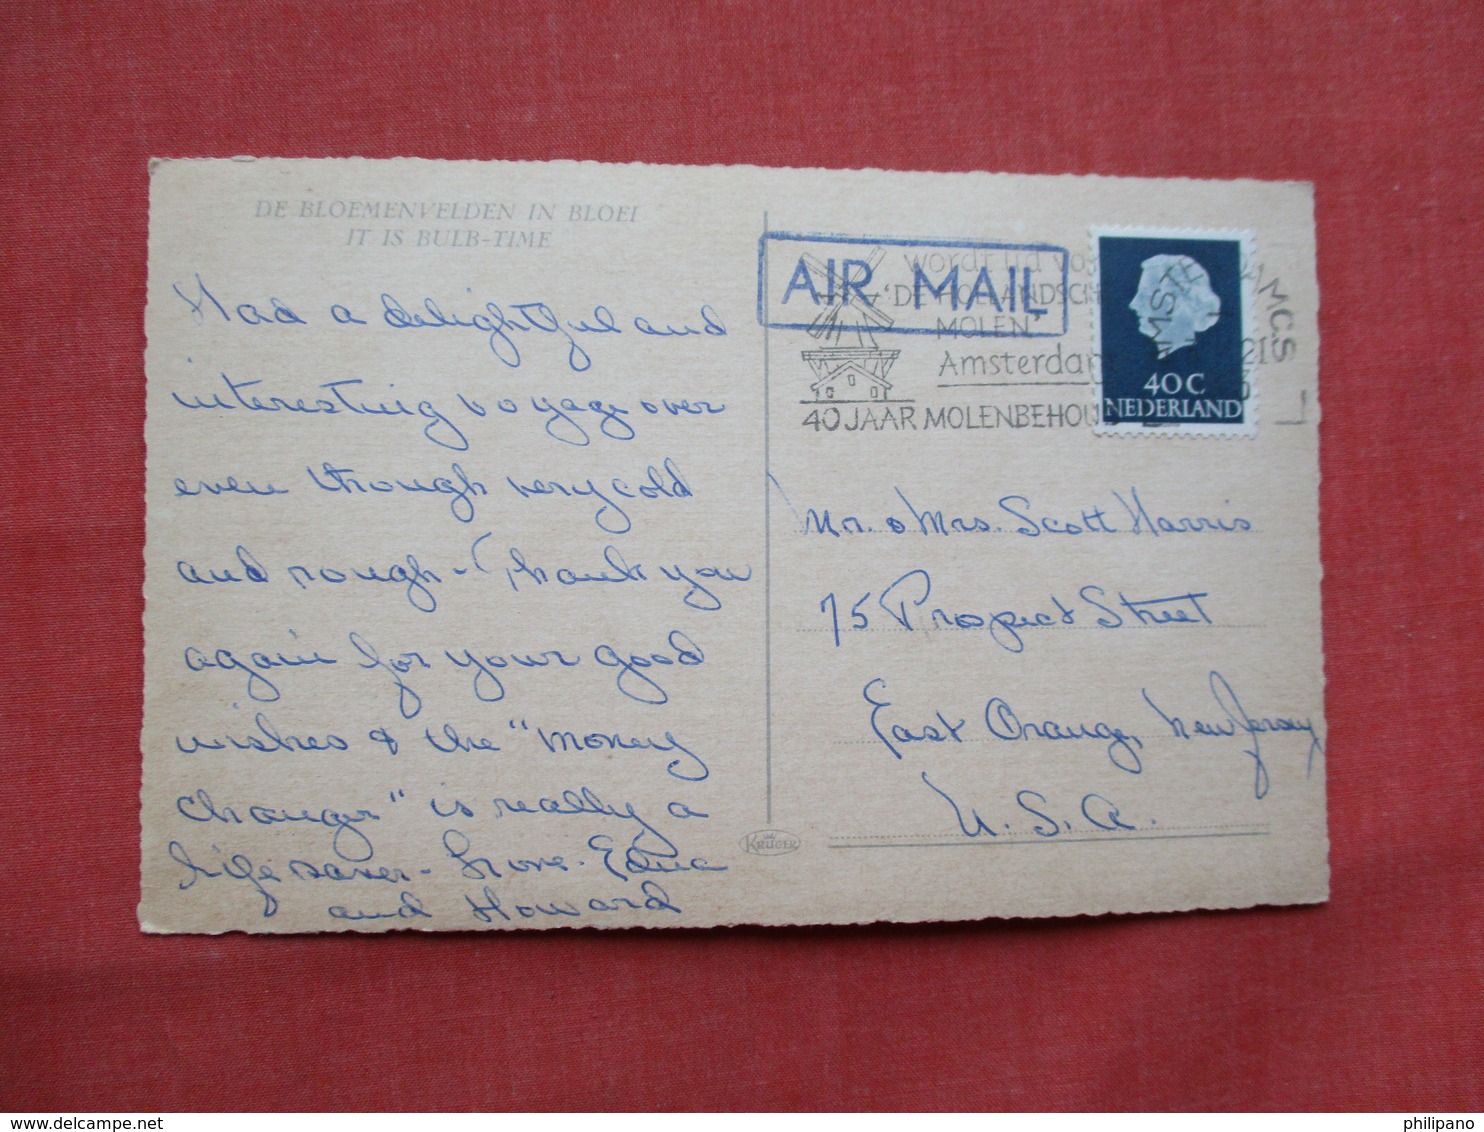 DE BLOEMENVELDEN IN BLOEI
IT IS BULB-TIME
Had a delightful and
interesting voyage over
even though very cold
and rough - Thank you
again for your good
wishes & the "money
changer" is really a
life saver - Love - Edna
and Howard
KRÜGER
AIR MAIL
wordt lid
'DE HOLLANDSCH
MOLEN'
Amsterdam
40 JAAR MOLENBEHOU
AMSTE AM CS
21
40 C
NEDERLAND
Mr. & Mrs. Scott Harris
75 Prospect Street
East Orange, New Jersey
U.S.A.
philipano